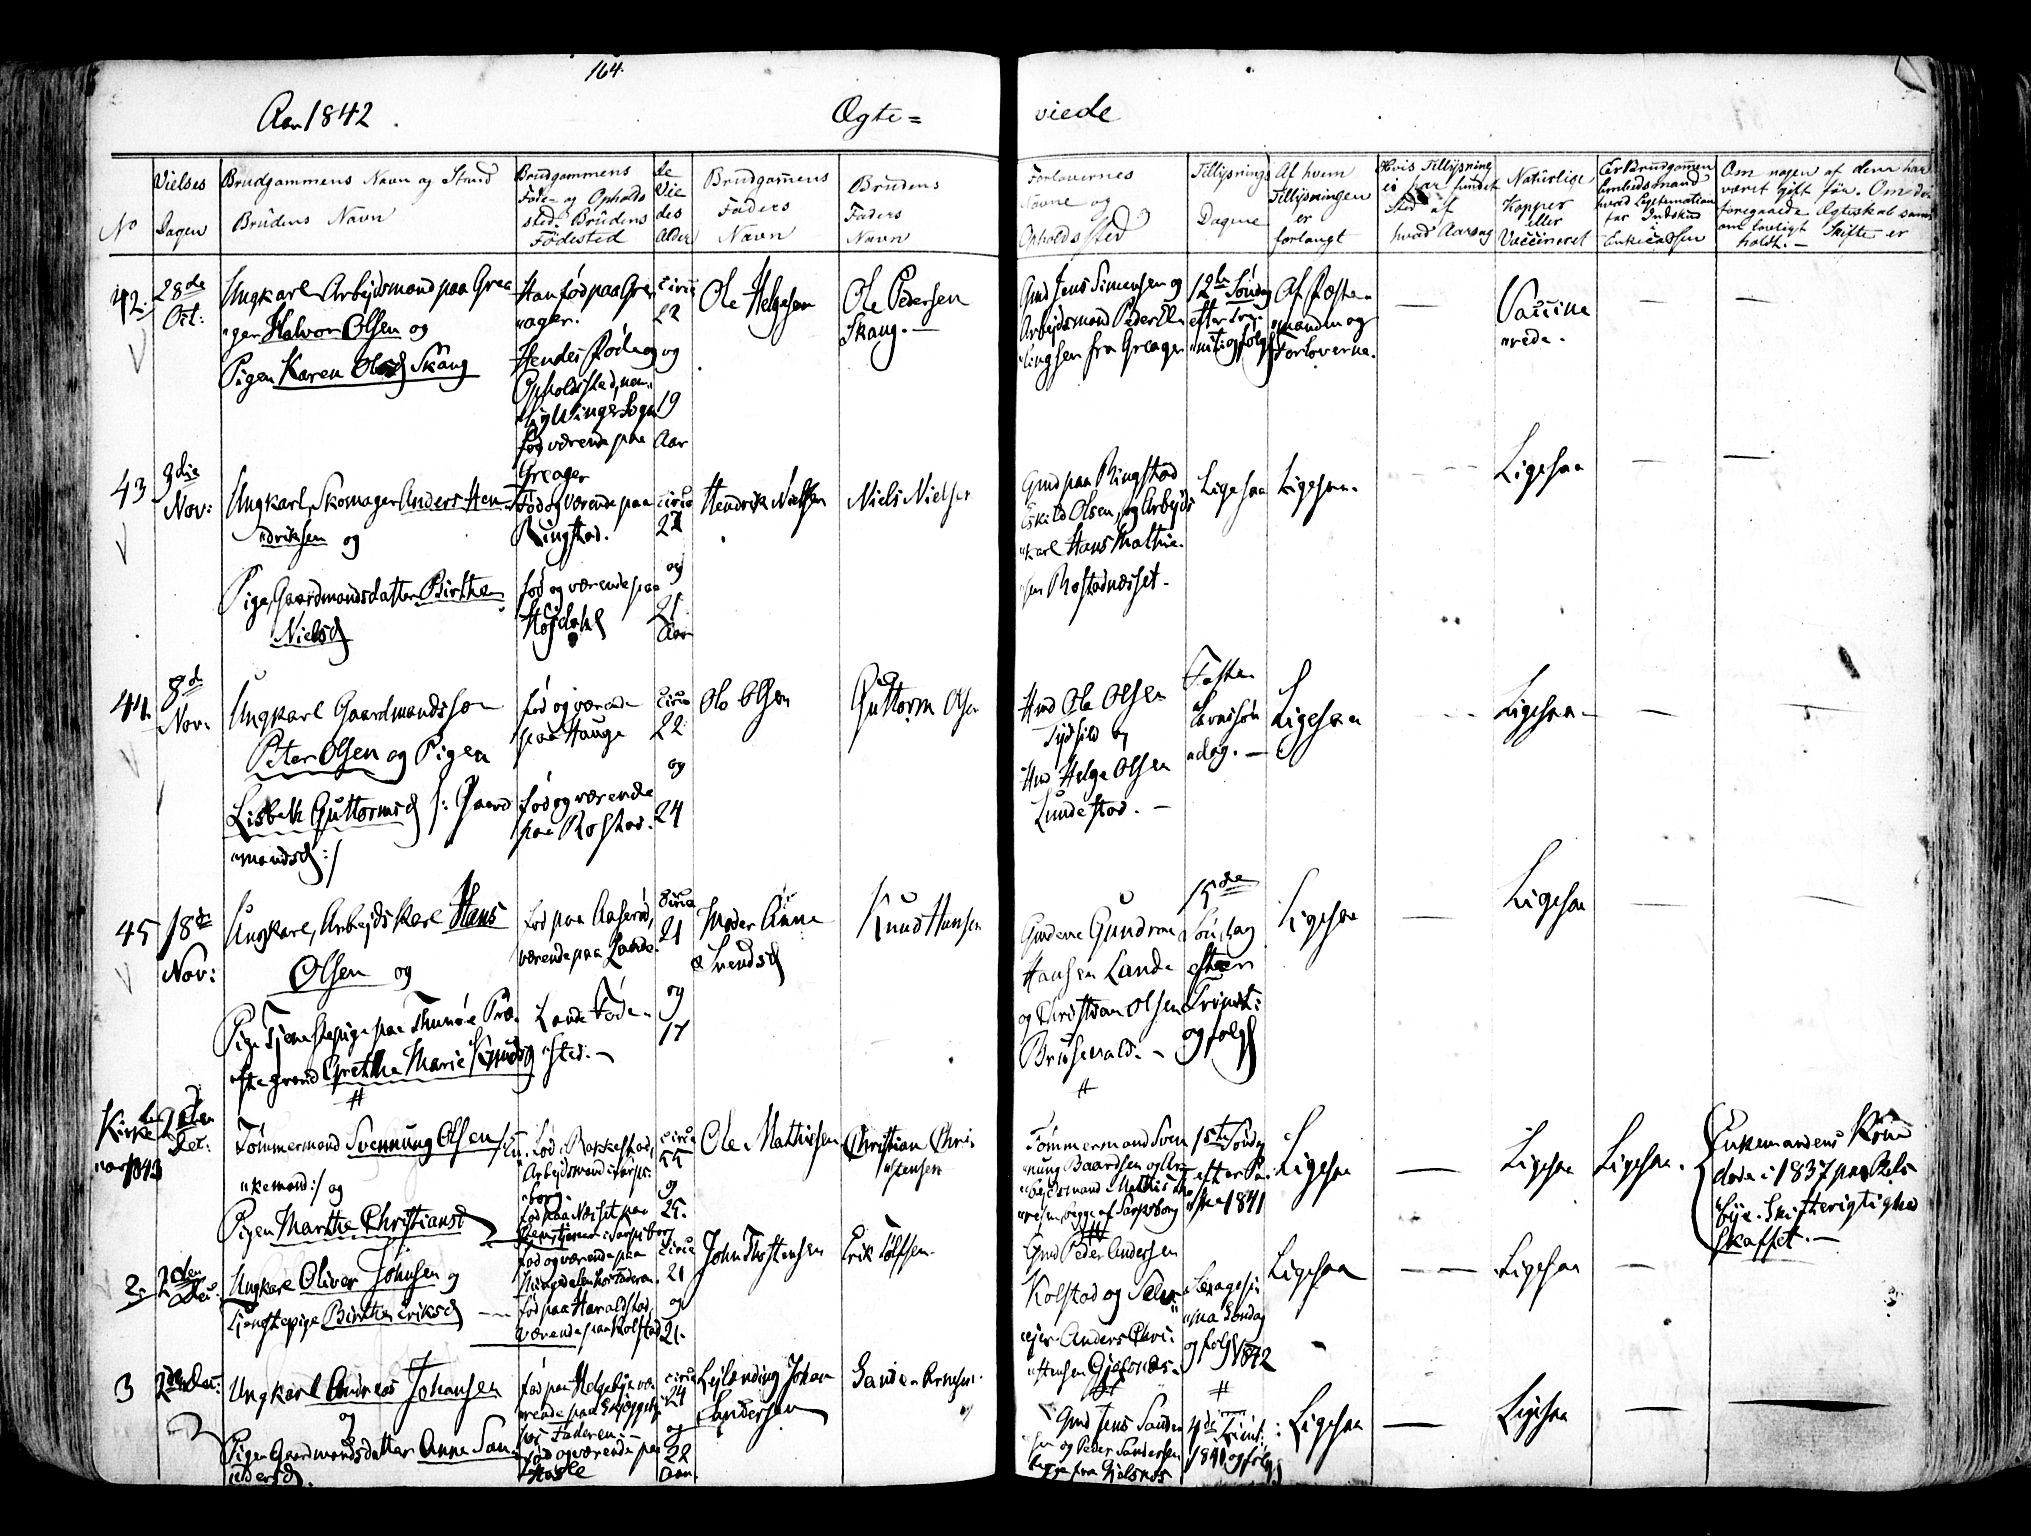 164.
Aar 1842.
Ægte=
viede
No
Vielses Dagen
Brudgammens Navn og Stand
Brudens Navn
Brudgammens Føde- og Opholds sted. Brudens Fødested
de Vie des Alder
Brudgammens Faders Navn
Brudens Faders Navn
Forlovernes Navne og Opholdssted
Tillysnings Dagene
Af hvem Tillysningen er forlangt
Hvis Tillysning ei har fundet Sted af hvad Aarsag
Naturlige Kopper eller Vaccineret
Om nogen af dem har været gift før. Om
foregaaende Ægteskab
holdt.- Skifte er
42.
28de Oct:
Ungkarl Arbejdsmand paa Grea
"ger Halvor Olsen og
Pigen Karen Olsd Skaug
Han fød paa Grea
"ager.
Hendes Føde og
Opholdsted,
fød værende paa
Greager
circa
22
og
19
Aar
Ole Helgesen
Ole Pedersen
Skaug.
Gmd Jens Simensen og
Arbejdsmand Peder
fra Greager
12te Søndag
efter
og følg
Af Fæste-
"manden og
Forloverne.
—
Vaccine
"rede.
—
—
43
9die
Nov:
Ungkarl, Skomager Anders Hen
"driksen og
Pige, Gaardmandsdatter Birthe
Nielsd
Fød og værende paa
Ringstad.
fød og værende paa
circa
27
og
21
Aar
Hendrik Nielsen
Niels Nielsen
Gmd paa Ringstad
Eskild Olsen, og Arbejds
"karl Hans Mathie-
"sen Rostadnæsset-
Ligesaa
Ligesaa.
Ligesaa
—
—
44.
8d
Nov.
Ungkarl Gaardmandssøn
Peter Olsen og Pigen
Lisbeth Guttormsd /: Gaard
"mandsd:/
fød og værende
paa Hauge
fød og værende
paa Rostad.
circa
22
og
24
Ole Olsen
Guttorm Olsen
Hmd Ole Olsen
og
Hmd Helge Olsen
Lundestad. —
Faste
"lavnssøn
"dag. —
Ligesaa
Ligesaa
—
—
45
18de
Nov:
Ungkarl, Arbejdskarl Hans
Olsen og
Pige Tjenestepige paa Thunøe Præ-
"stegrund Grethe Marie Knudsd
fød paa Aaserød,
værende paa Lande.
Lande Føde-
"sted.—
circa
21
og
17
Moder Anne
Svendsd
Knud Hansen
Gmdene
Hansen Lande
og Christian Olsen
Brusevold.—
15de
Søndag
efter
Trinit:
og følg
Ligesaa
—
Ligesaa
—
—
Kirke
"aar 1843
2den
Dec:
Tømmermand Svennung Olsen /:En
"kemand:/ og
Pigen Marthe Christiansd
fød i Rakkestad,
Arbejdsmand i Sarps-
"borg.
fød paa Næsset paa
circa
55
og
25.
Ole Mathisen
Christian Chri-
"stensen
Tømmermand Sven
"nung Baardsen og Ar-
"bejdsmand Mathis
begge af Sarpsborg
1ste Søndag
efter Pa-
"ske 1841
Ligesaa
—
Ligesaa
Ligesaa.
Enkemandens Kone
døde i 1837 paa
bye. Skifterigtighed
skaffet.—
2.
2den
Dec:
Ungkarl Oliver Johnsen og
Tjenestepige Birthe Eriksd
fød og værende paa
fød paa Haraldstad,
værende paa Kolstad
circa
21
og
21.
John Thostensen
Erik Tolfsen.
Gmd Peder Andersen
Kolstad og Selv
"ejer Anders Chri-
"stensen
Sexagesi
"ma Søndag
og følg 1842
Ligesaa
—
Ligesaa
—
3
2den Dec:
Ungkarl Andreas Johansen
og
Pigen Gaardmandsdatter Anne San-
"dersd.
fød paa Helgebye væ-
"rende paa
hos Faderen.—
fød og værende paa
Hasle
circa
24
og
22
Aar
Lejlænding Johan
Sandersen
Sander Arnesen.
Gmd Jens Sander
"sen og Peder Sandersen
begge fra
4de Trinit:
1841 og følg
Ligesaa
—
Ligesaa
—
—